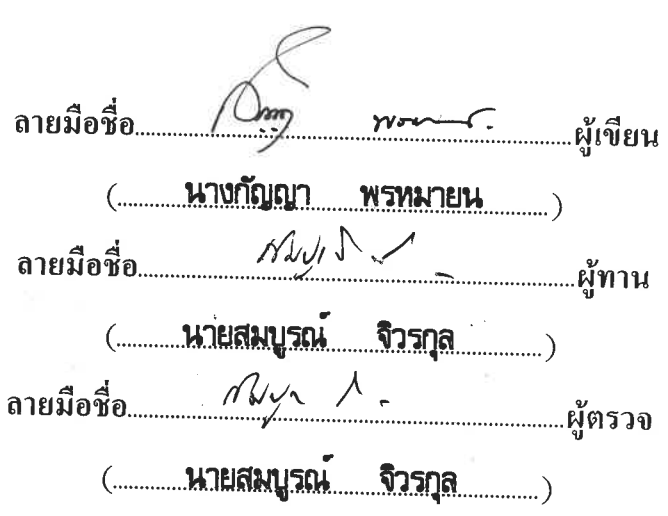 ลายมือชื่อ..........ผู้เขียน
(..........นางกัญญา พรหมายน..........)
ลายมือชื่อ..........ผู้ทาน
(..........นายสมบูรณ์ จิวรกุล..........)
ลายมือชื่อ..........ผู้ตรวจ
(..........นายสมบูรณ์ จิวรกุล..........)